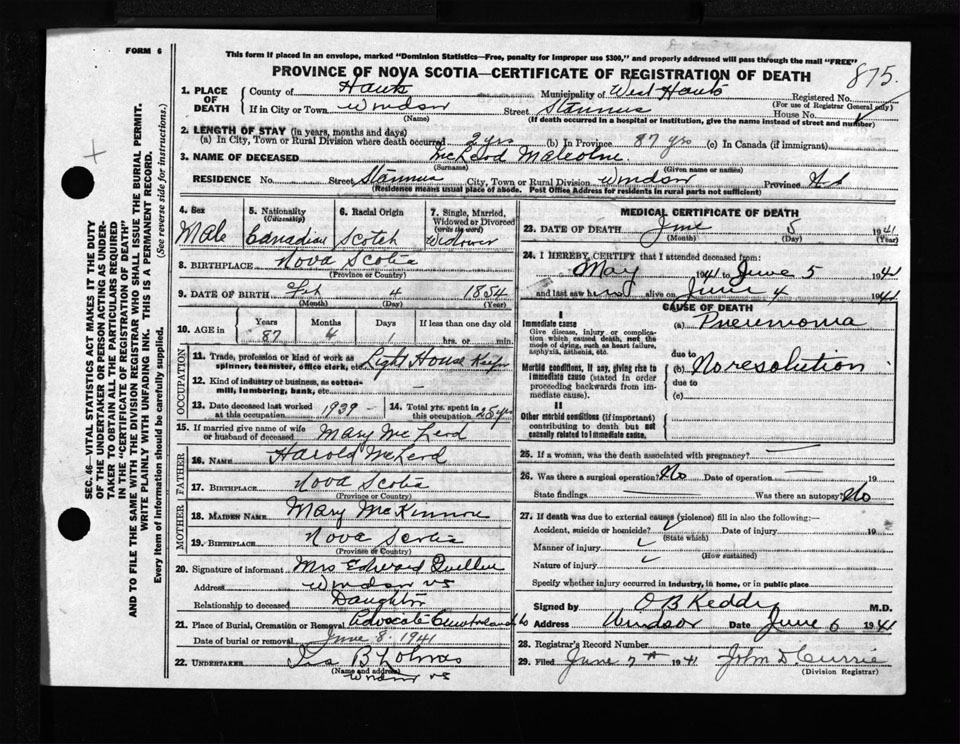 FORM 6
This form if placed in an envelope, marked "Dominion Statistics—Free, penalty for improper use $300," and properly addressed will pass through the mail "FREE"
PROVINCE OF NOVA SCOTIA—CERTIFICATE OF REGISTRATION OF DEATH
875.
1. PLACE OF DEATH
County of Hants Municipality of West Hants Registered No.
(For use of Registrar General only)
If in City or Town Windsor Street Stannus House No.
(Name) (If death occurred in a hospital or institution, give the name instead of street and number)
2. LENGTH OF STAY (in years, months and days)
(a) In City, Town or Rural Division where death occurred 2 yrs (b) In Province 87 yrs (c) In Canada (if immigrant)
3. NAME OF DECEASED McLeod Malcolm
(Surname) (Given name or names)
RESIDENCE No. Street Stannus City, Town or Rural Division Windsor Province N S
(Residence means usual place of abode. Post Office Address not sufficient for residents in rural parts)
4. Sex Male
5. Nationality (Citizenship) Canadian
6. Racial Origin Scotch
7. Single, Married, Widowed or Divorced (write the word) Widower
8. BIRTHPLACE Nova Scotia
(Province or Country)
9. DATE OF BIRTH 4 1854
(Month) (Day) (Year)
10. AGE in Years Months Days If less than one day old
87 1 hrs. or min.
OCCUPATION
11. Trade, profession or kind of work as spinner, teamster, office clerk, etc. Light House Keeper
12. Kind of industry or business, as cotton-mill, lumbering, bank, etc. —
13. Date deceased last worked at this occupation 1939 –
14. Total yrs. spent in this occupation
15. If married give name of wife or husband of deceased Mary McLeod
FATHER
16. NAME Harold McLeod
17. BIRTHPLACE Nova Scotia
(Province or Country)
MOTHER
18. MAIDEN NAME Mary McKinnon
19. BIRTHPLACE Nova Scotia
(Province or Country)
20. Signature of informant Mrs Edward
Address Windsor NS
Relationship to deceased Daughter
21. Place of Burial, Cremation or Removal Advocate Cumberland Co
Date of burial or removal June 8. 1941
22. UNDERTAKER
Windsor NS
MEDICAL CERTIFICATE OF DEATH
23. DATE OF DEATH June 5 1941
(Month) (Day) (Year)
24. I HEREBY CERTIFY that I attended deceased from:
May 1941 to June 5 1941
and last saw him alive on June 4 1941
CAUSE OF DEATH
I
Immediate cause
Give disease, injury or complication which caused death, not the mode of dying, such as heart failure, asphyxia, asthenia, etc.
(a) Pneumonia
due to
Morbid conditions, if any, giving rise to immediate cause (stated in order proceeding backwards from immediate cause).
(b) No resolution
due to
(c)
II
Other morbid conditions (if important) contributing to death but not causally related to immediate cause.
25. If a woman, was the death associated with pregnancy?
26. Was there a surgical operation? No Date of operation 19
State findings Was there an autopsy? No
27. If death was due to external causes (violence) fill in also the following:—
Accident, suicide or homicide? Date of injury 19
(State which)
Manner of injury
(How sustained)
Nature of injury
Specify whether injury occurred in industry, in home, or in public place
Signed by O B Keddy M.D.
Address Windsor Date June 6 1941
28. Registrar's Record Number
29. Filed June 7th 1941 John D Currie
(Division Registrar)
SEC. 46—VITAL STATISTICS ACT MAKES IT THE DUTY
OF THE UNDERTAKER OR PERSON ACTING AS UNDER-
TAKER TO OBTAIN ALL THE PARTICULARS REQUIRED
IN THE "CERTIFICATE OF REGISTRATION OF DEATH"
AND TO FILE THE SAME WITH THE DIVISION REGISTRAR WHO SHALL ISSUE THE BURIAL PERMIT.
WRITE PLAINLY WITH UNFADING INK. THIS IS A PERMANENT RECORD.
Every item of information should be carefully supplied. (See reverse side for instructions.)